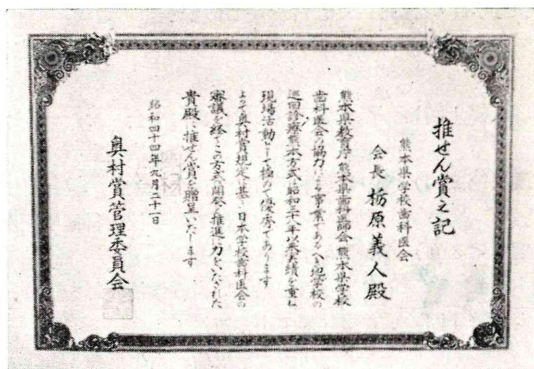 推せん賞之記
熊本県学校歯科医会
会長 栃原義人殿
熊本県教育庁熊本県歯科医師会熊本県学校
歯科医会の協力による事業であるへき地学校の
巡回診療熊本方式は昭和三十一年以来実績を重ね
現場活動として極めて優秀であります
よって奥村賞規定に基き日本学校歯科医会の
審議を経てこの方式の開発と推進に力をいたされた
貴殿に推せん賞を贈呈いたします
昭和四十四年九月二十一日
奥村賞管理委員会